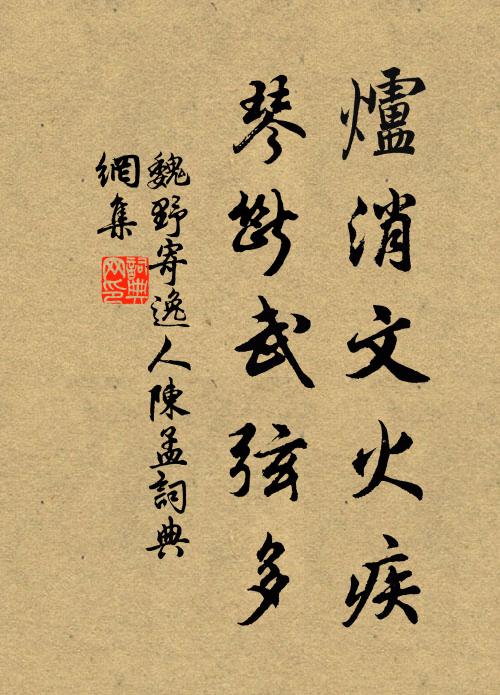 爐消文火疾
琴斷武弦多
魏野寄逸人陳孟詞典
網集
詞典
網印